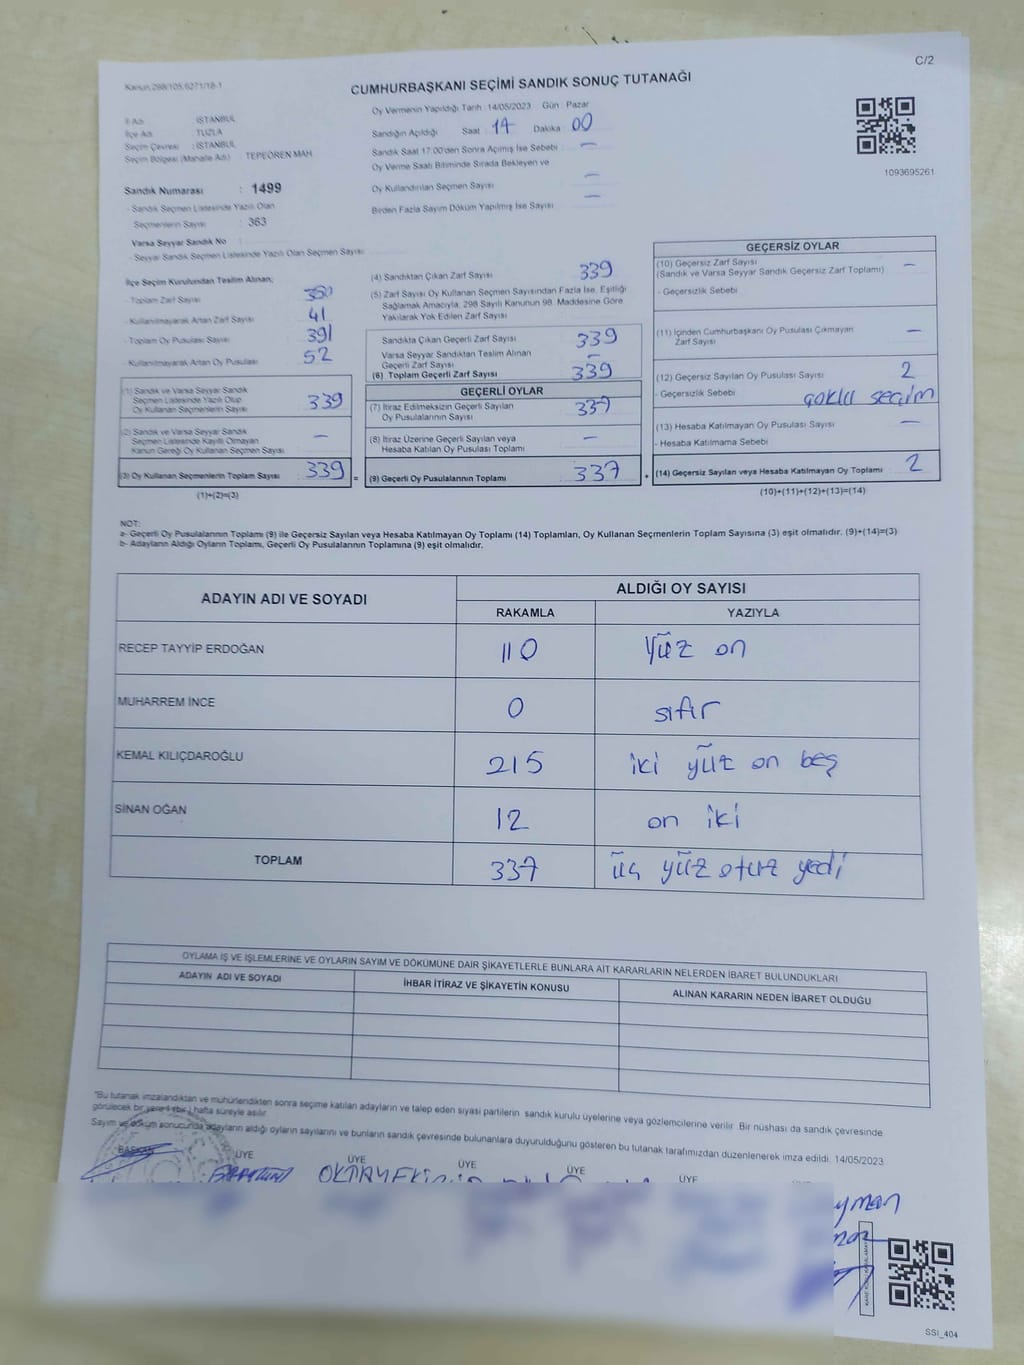 C/2
Kanun 298/105,6271/18-1
CUMHURBAŞKANI SEÇİMİ SANDIK SONUÇ TUTANAĞI
İl Adı : İSTANBUL
İlçe Adı : TUZLA
Seçim Çevresi : İSTANBUL
Seçim Bölgesi (Mahalle Adı) : TEPEÖREN MAH.
Sandık Numarası : 1499
- Sandık Seçmen Listesinde Yazılı Olan
Seçmenlerin Sayısı : 363
Varsa Seyyar Sandık No :
- Seyyar Sandık Seçmen Listesinde Yazılı Olan Seçmen Sayısı
Oy Vermenin Yapıldığı Tarih :14/05/2023 Gün Pazar
Sandığın Açıldığı Saat 17 Dakika 00
Sandık Saat 17:00'den Sonra Açılmış İse Sebebi : —
Oy Verme Saati Bitiminde Sırada Bekleyen ve
Oy Kullandırılan Seçmen Sayısı —
Birden Fazla Sayım Döküm Yapılmış İse Sayısı —
1093695261
İlçe Seçim Kurulundan Teslim Alınan;
- Toplam Zarf Sayısı 380
- Kullanılmayarak Artan Zarf Sayısı 41
- Toplam Oy Pusulası Sayısı 391
- Kullanılmayarak Artan Oy Pusulası 52
(1) Sandık ve Varsa Seyyar Sandık
Seçmen Listesinde Yazılı Olup
Oy Kullanan Seçmenlerin Sayısı 339
(2) Sandık ve Varsa Seyyar Sandık
Seçmen Listesinde Kayıtlı Olmayan
Kanun Gereği Oy Kullanan Seçmen Sayısı —
(3) Oy Kullanan Seçmenlerin Toplam Sayısı 339 =
(1)+(2)=(3)
(4) Sandıktan Çıkan Zarf Sayısı 339
(5) Zarf Sayısı Oy Kullanan Seçmen Sayısından Fazla İse, Eşitliği
Sağlamak Amacıyla, 298 Sayılı Kanunun 98. Maddesine Göre
Yakılarak Yok Edilen Zarf Sayısı
Sandıkta Çıkan Geçerli Zarf Sayısı 339
Varsa Seyyar Sandıktan Teslim Alınan
Geçerli Zarf Sayısı —
(6) Toplam Geçerli Zarf Sayısı 339
GEÇERLİ OYLAR
(7) İtiraz Edilmeksizin Geçerli Sayılan
Oy Pusulalarının Sayısı 337
(8) İtiraz Üzerine Geçerli Sayılan veya
Hesaba Katılan Oy Pusulası Toplamı —
(9) Geçerli Oy Pusulalarının Toplamı 337 +
GEÇERSİZ OYLAR
(10) Geçersiz Zarf Sayısı —
(Sandık ve Varsa Seyyar Sandık Geçersiz Zarf Toplamı)
- Geçersizlik Sebebi
(11) İçinden Cumhurbaşkanı Oy Pusulası Çıkmayan
Zarf Sayısı —
(12) Geçersiz Sayılan Oy Pusulası Sayısı 2
- Geçersizlik Sebebi çoklu seçim
(13) Hesaba Katılmayan Oy Pusulası Sayısı —
- Hesaba Katılmama Sebebi
(14) Geçersiz Sayılan veya Hesaba Katılmayan Oy Toplamı 2
(10)+(11)+(12)+(13)=(14)
NOT:
a- Geçerli Oy Pusulalarının Toplamı (9) ile Geçersiz Sayılan veya Hesaba Katılmayan Oy Toplamı (14) Toplamları, Oy Kullanan Seçmenlerin Toplam Sayısına (3) eşit olmalıdır. (9)+(14)=(3)
b- Adayların Aldığı Oyların Toplamı, Geçerli Oy Pusulalarının Toplamına (9) eşit olmalıdır.
ADAYIN ADI VE SOYADI ALDIĞI OY SAYISI
RAKAMLA YAZIYLA
RECEP TAYYİP ERDOĞAN 110 Yüz on
MUHARREM İNCE 0 sıfır
KEMAL KILIÇDAROĞLU 215 iki yüz on beş
SİNAN OĞAN 12 on iki
TOPLAM 337 üç yüz otuz yedi
OYLAMA İŞ VE İŞLEMLERİNE VE OYLARIN SAYIM VE DÖKÜMÜNE DAİR ŞİKAYETLERLE BUNLARA AİT KARARLARIN NELERDEN İBARET BULUNDUKLARI
ADAYIN ADI VE SOYADI İHBAR İTİRAZ VE ŞİKAYETİN KONUSU ALINAN KARARIN NEDEN İBARET OLDUĞU
"Bu tutanak imzalandıktan ve mühürlendikten sonra seçime katılan adayların ve talep eden siyasi partilerin sandık kurulu üyelerine veya gözlemcilerine verilir. Bir nüshası da sandık çevresinde
görülecek bir yere 1 (bir) hafta süreyle asılır.
Sayım ve döküm sonucunda adayların aldığı oyların sayılarını ve bunların sandık çevresinde bulunanlara duyurulduğunu gösteren bu tutanak tarafımızdan düzenlenerek imza edildi. 14/05/2023
BAŞKAN ÜYE ÜYE ÜYE ÜYE ÜYE
SSI_404